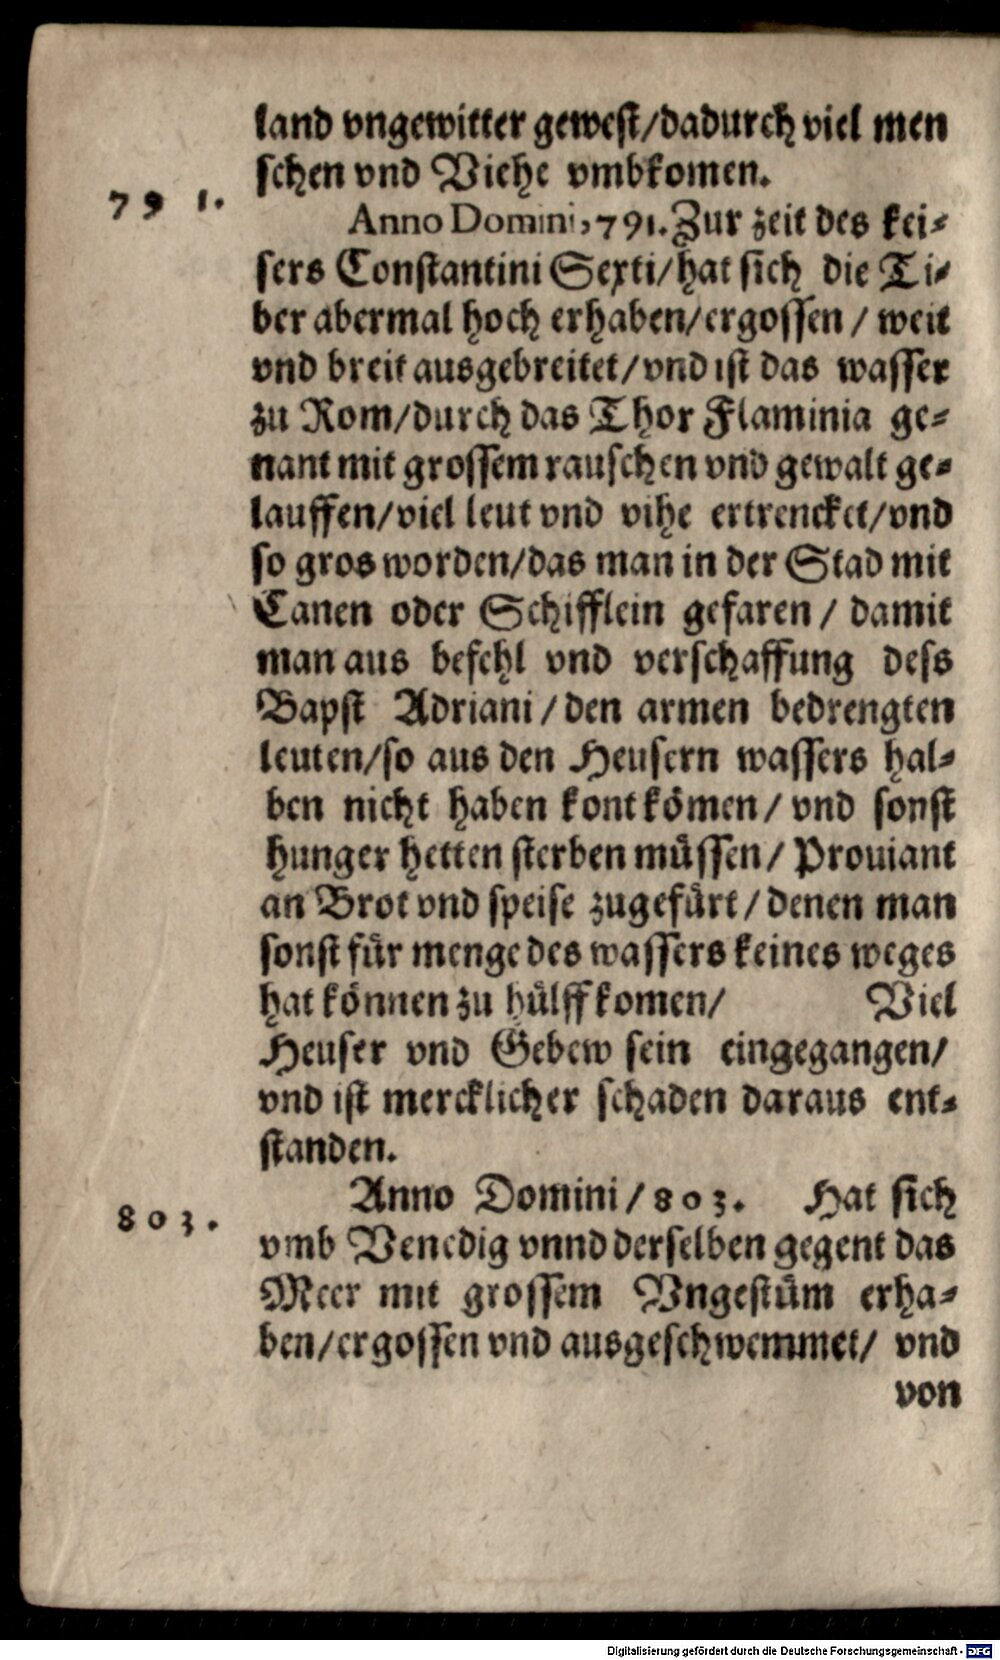 land vngewitter gewest/dadurch viel men
schen vnd Viehe vmbkomen.
791.
Anno Domini, 791. Zur zeit des kei-
sers Constantini Sexti/hat sich die Ti-
ber abermal hoch erhaben/ergossen / weit
vnd breit ausgebreitet/vnd ist das wasser
zu Rom/durch das Thor Flaminia ge-
nant mit grossem rauschen vnd gewalt ge-
lauffen/viel leut vnd vihe ertrencket/vnd
so gros worden/das man in der Stad mit
Canen oder Schifflein gefaren / damit
man aus befehl vnd verschaffung dess
Bapst Adriani / den armen bedrengten
leuten/so aus den Heusern wassers hal-
ben nicht haben kont kömen / vnd sonst
hunger hetten sterben müssen / Prouiant
an Brot vnd speise zugefürt / denen man
sonst für menge des wassers keines weges
hat können zu hülff komen/ Viel
Heuser vnd Gebew sein eingegangen/
vnd ist mercklicher schaden daraus ent-
standen.
803.
Anno Domini / 803. Hat sich
vmb Venedig vnnd derselben gegent das
Meer mit grossem Vngestüm erha-
ben/ergossen vnd ausgeschwemmet/ vnd
von
Digitalisierung gefördert durch die Deutsche Forschungsgemeinschaft - DFG